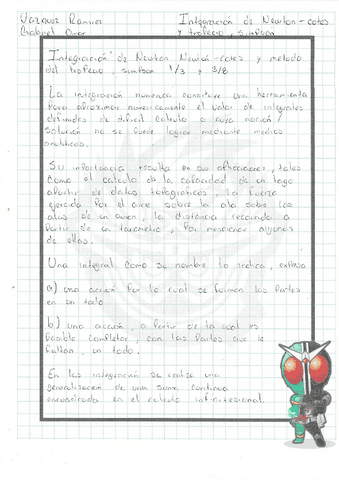 Vazquez Ramirez
Gabriel Omar
Integración de Newton-cotes
y trapecio, simpson
Integración de Newton Newton-cotes y metodo
del trapecio, simpson 1/3 y 3/8
La integración numerica constituye una herramienta
para aproximar numericamente el valor de integrales
definidas de dificil calculo o cuya noción/
solución no se puede lograr mediante medios
analiticos.
Su importancia resulta en sus aplicaciones, tales
como el calculo de la capacidad de un lago
apartir de datos topograficos, la fuerza
ejercida por el aire sobre la ala sobre las
alas de un avion, la distancia recorrida a
partir de un taximetro, por mencionar algunos
de ellas.
Una integral como su nombre lo indica, expresa
a) una acción por la cual se forman las partes
en un todo
b) una acción, a partir de la cual es
posible completar, con las partes que le
faltan, un todo.
En las integración se realiza una
generalización de una suma continua
encuadrada en el calculo infinitesimal.